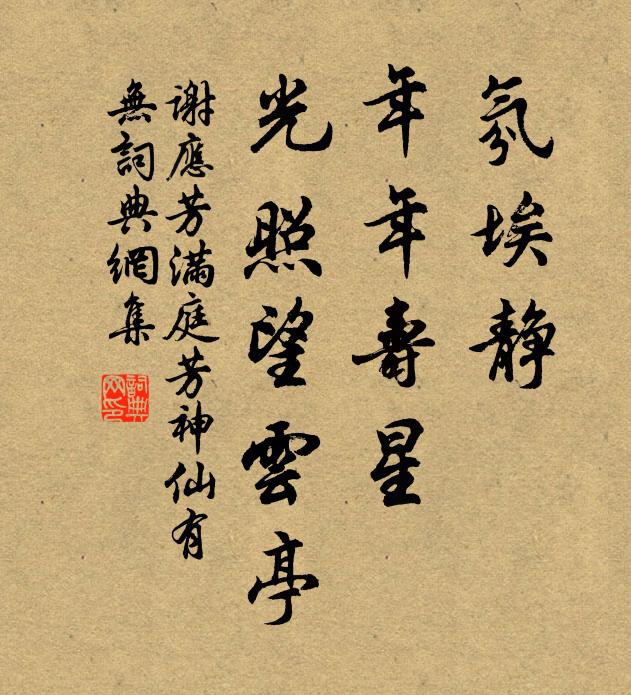 氛埃静
年年壽星
光照望雲亭
謝應芳滿庭芳神仙有
無詞典網集
詞典網印